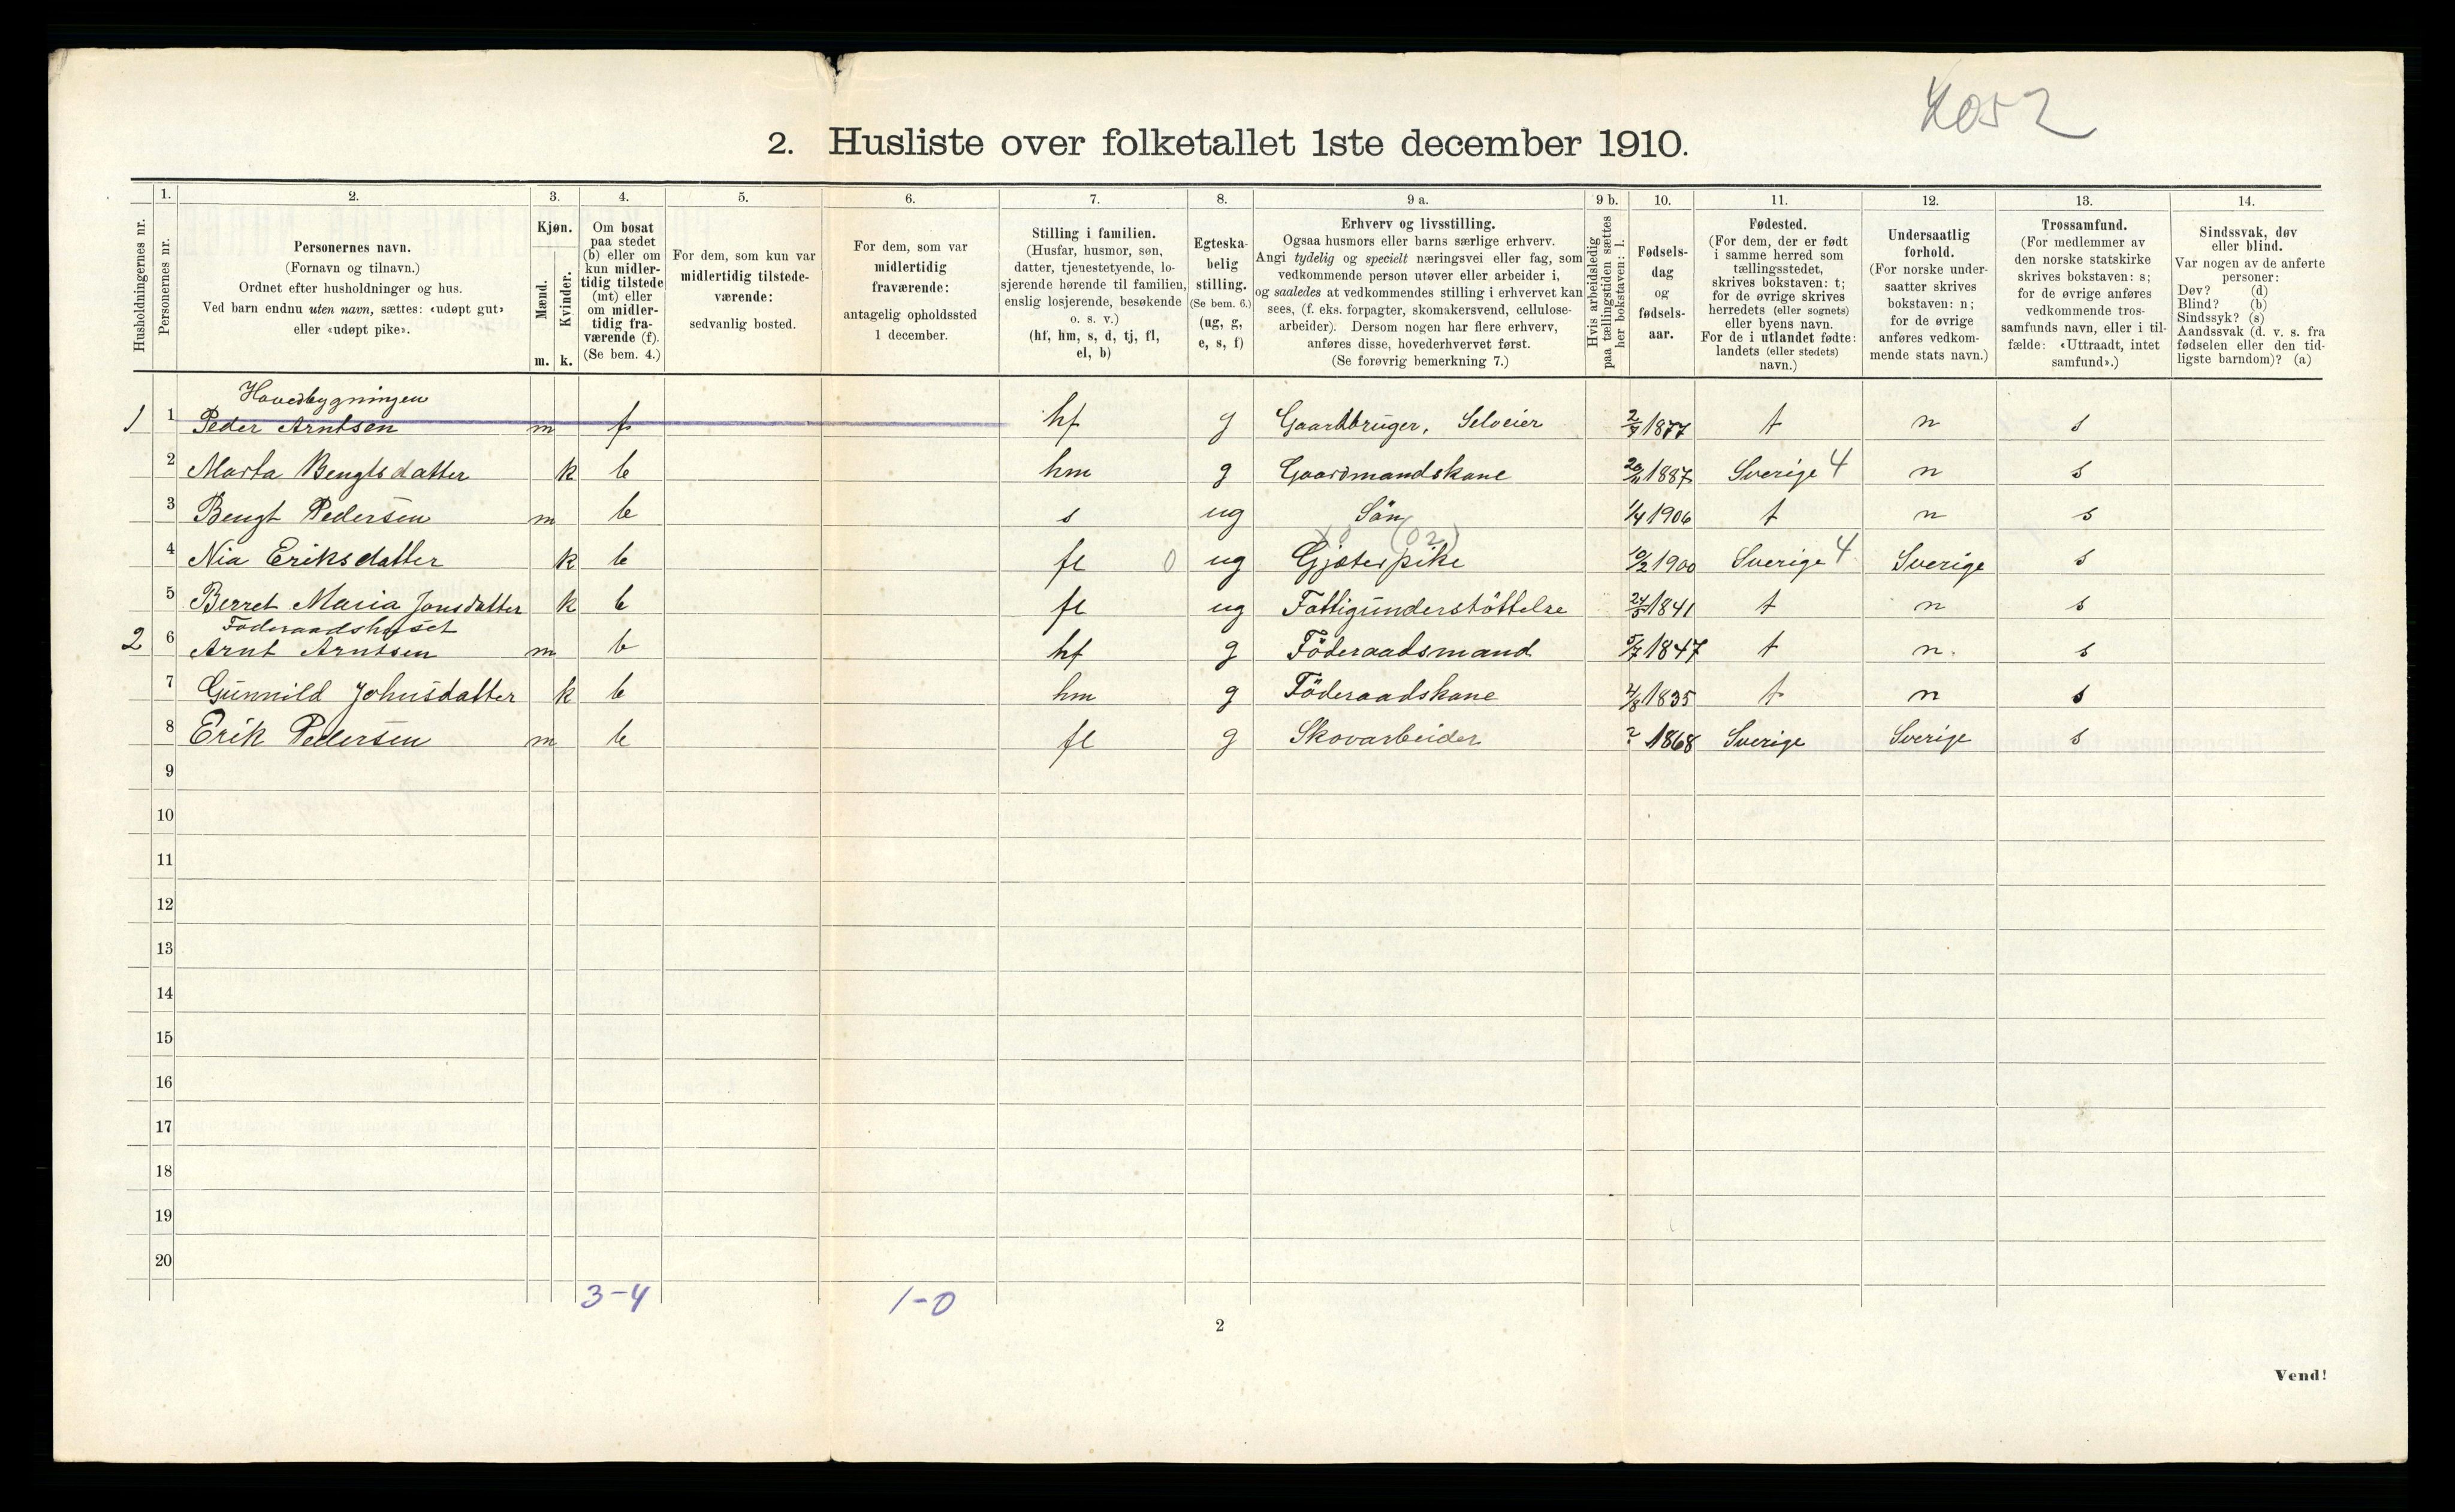 4052
2. Husliste over folketallet 1ste december 1910.
Husholdningernes nr.
1. Personernes nr.
2. Personernes navn. (Fornavn og tilnavn.) Ordnet efter husholdninger og hus. Ved barn endnu uten navn, sættes: «udøpt gut» eller «udøpt pike».
3. Kjøn. Mænd. m. Kvinder. k.
4. Om bosat paa stedet (b) eller om kun midlertidig tilstede (mt) eller om midlertidig fraværende (f). (Se bem. 4.)
5. For dem, som kun var midlertidig tilstedeværende: sedvanlig bosted.
6. For dem, som var midlertidig fraværende: antagelig opholdssted 1 december.
7. Stilling i familien. (Husfar, husmor, søn, datter, tjenestetyende, losjerende hørende til familien, enslig losjerende, besøkende o. s. v.) (hf, hm, s, d, tj, fl, el, b)
8. Egteskabelig stilling. (Se bem. 6.) (ug, g, e, s, f)
9 a. Erhverv og livsstilling. Ogsaa husmors eller barns særlige erhverv. Angi tydelig og specielt næringsvei eller fag, som vedkommende person utøver eller arbeider i, og saaledes at vedkommendes stilling i erhvervet kan sees, (f. eks. forpagter, skomakersvend, cellulosearbeider). Dersom nogen har flere erhverv, anføres disse, hovederhvervet først. (Se forøvrig bemerkning 7.)
9 b. Hvis arbeidsledig paa tællingstiden sættes her bokstaven: l.
10. Fødselsdag og fødselsaar.
11. Fødested. (For dem, der er født i samme herred som tællingsstedet, skrives bokstaven: t; for de øvrige skrives herredets (eller sognets) eller byens navn. For de i utlandet fødte: landets (eller stedets) navn.)
12. Undersaatlig forhold. (For norske undersaatter skrives bokstaven: n; for de øvrige anføres vedkommende stats navn.)
13. Trossamfund. (For medlemmer av den norske statskirke skrives bokstaven: s; for de øvrige anføres vedkommende trossamfunds navn, eller i tilfælde: «Uttraadt, intet samfund».)
14. Sindssvak, døv eller blind. Var nogen av de anførte personer: Døv? (d) Blind? (b) Sindssyk? (s) Aandssvak (d. v. s. fra fødselen eller den tidligste barndom)? (a)
Hovedbygningen
1 1 Peder Arntsen m f hf g Gaardbruger, Selveier 2/7 1877 t n s
2 Marta Bengtsdatter k b hm g Gaardmandskone 1887 Sverige 4 n s
3 Bengt Pedersen m b s ug Sön 1/4 1906 t n s
(02)
4 Nia Eriksdatter k b fl 0 ug Gjæterpike 10/2 1900 Sverige 4 Sverige s
5 Berret Maria Jonsdatter k b fl ug Fattigunderstöttelse 24/5 1841 t n s
Föderaadshuset
2 6 Arnt Arntsen m b hf g Föderaadsmand 5/7 1847 t n. s
7 Gunnild Johnsdatter k b hm g Föderaadskone 4/8 1835 t n s
8 Erik Pedersen m b fl g Skovarbeider ? 1868 Sverige Sverige s
9
10
11
12
13
14
15
16
17
18
19
20
3-4 1-0
2
Vend!